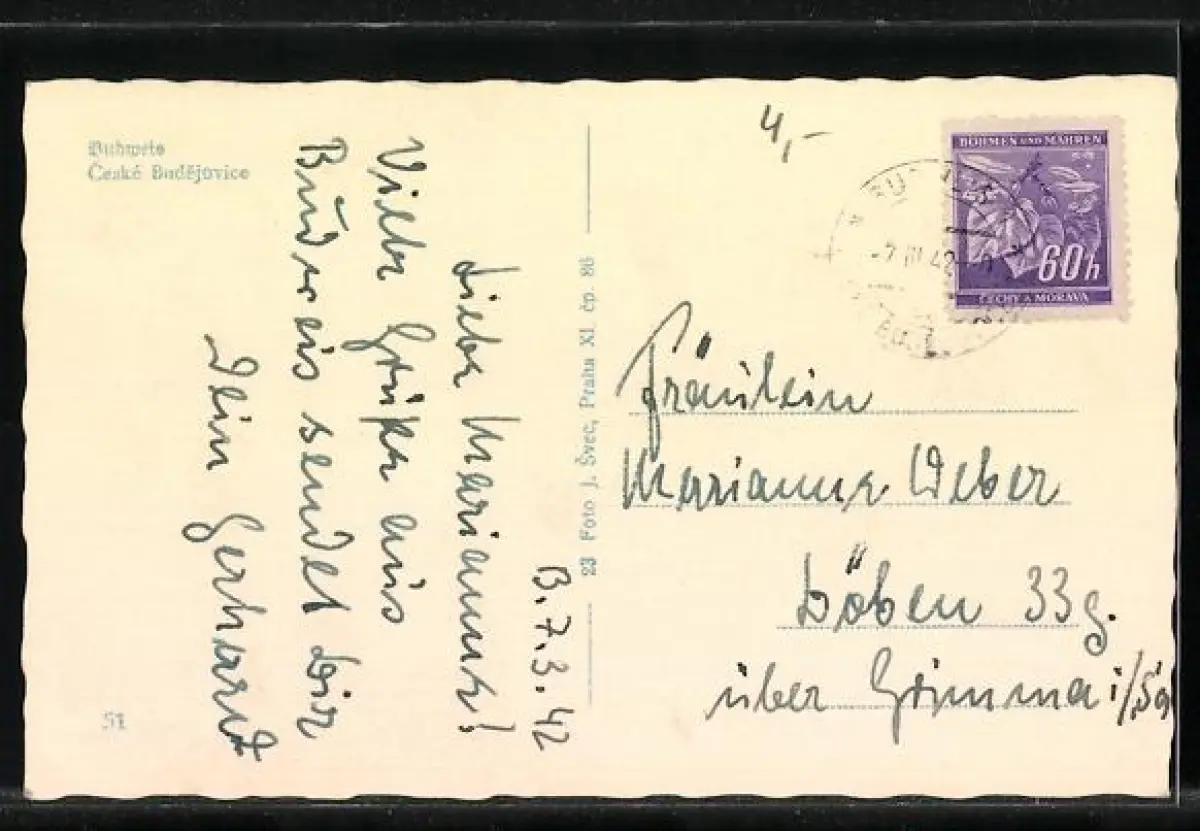 Budweis
České Budějovice
B. 7. 3. 42
Liebe Marianne!
Viele Grüße aus
Budweis sendet Dir
Dein Gerhard
51
23 Foto J. Švec, Praha XI. čp. 86
4,-
BÖHMEN UND MÄHREN
60h
ČECHY A MORAVA
-7 III 42
Fräulein
Marianne Weber
Döben 33g.
über Grimma i/Sa